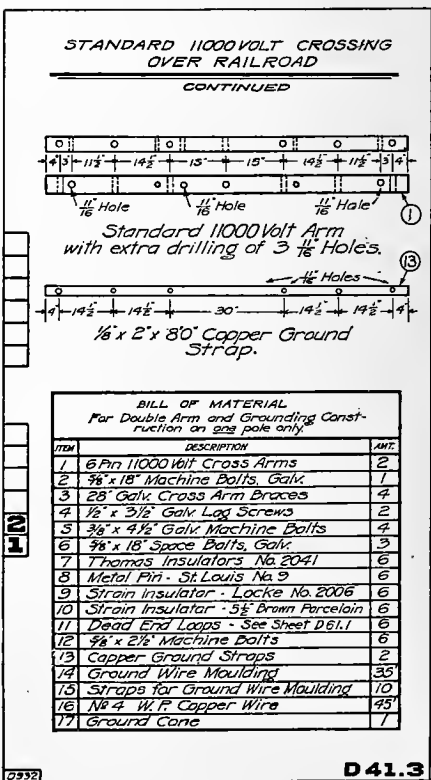 STANDARD 11000 VOLT CROSSING
OVER RAILROAD
CONTINUED
4" 3" 11½" 14½" 15" 15" 14½" 11½" 3" 4"
11/16" Hole 11/16" Hole 11/16" Hole 1
Standard 11000 Volt Arm
with extra drilling of 3 11/16" Holes.
11/16" Holes 13
4" 14½" 14½" 30" 14½" 14½" 4"
⅛" x 2" x 8'0" Copper Ground
Strap.
BILL OF MATERIAL
For Double Arm and Grounding Const-
ruction on one pole only.
ITEM DESCRIPTION AMT.
1 6 Pin 11000 Volt Cross Arms 2
2 ⅝" x 18" Machine Bolts, Galv. 1
3 28" Galv. Cross Arm Braces 4
4 ½" x 3½" Galv. Lag Screws 2
5 3/8" x 4½" Galv. Machine Bolts 4
6 ⅝" x 18" Space Bolts, Galv. 3
7 Thomas Insulators No. 2041 6
8 Metal Pin - St. Louis No. 9 6
9 Strain Insulator - Locke No. 2006 6
10 Strain Insulator - 5½" Brown Porcelain 6
11 Dead End Loops - See Sheet D61.1 6
12 ⅝" x 2½" Machine Bolts 6
13 Copper Ground Straps 2
14 Ground Wire Moulding 35'
15 Straps for Ground Wire Moulding 10
16 Nº 4 W.P. Copper Wire 45'
17 Ground Cone 1
2
1
D932
D41.3